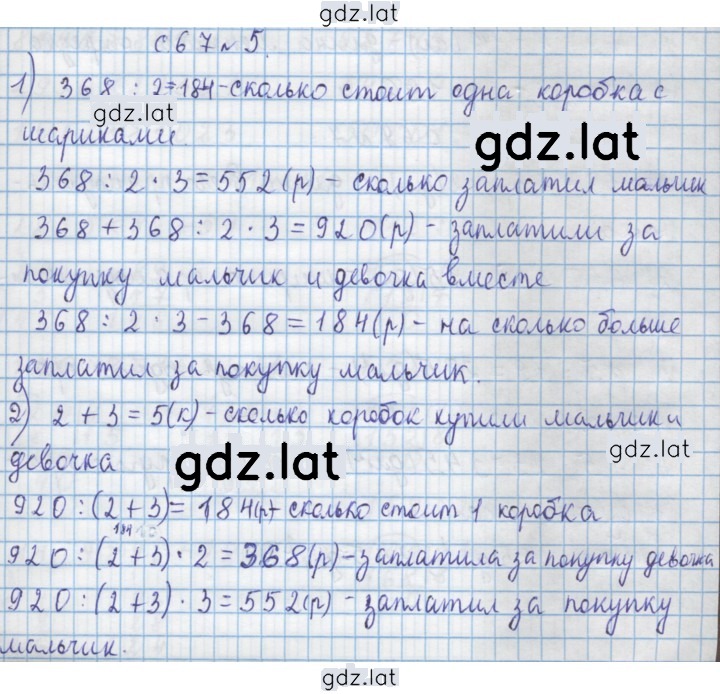 gdz.lat
с 67 № 5.
1) 368 : 2 = 184 - сколько стоит одна коробка с
gdz.lat
gdz.lat
шариками.
368 : 2 · 3 = 552 (р) - сколько заплатил мальчик
368 + 368 : 2 · 3 = 920 (р) - заплатили за
покупку мальчик и девочка вместе
368 : 2 · 3 - 368 = 184 (р) - на сколько больше
заплатил за покупку мальчик.
2) 2 + 3 = 5 (к) - сколько коробок купили мальчик и
gdz.lat
gdz.lat
девочка
920 : (2 + 3) = 184 (р) - сколько стоит 1 коробка
184
920 : (2 + 3) · 2 = 368 (р) - заплатила за покупку девочка
920 : (2 + 3) · 3 = 552 (р) - заплатил за покупку
мальчик.
gdz.lat